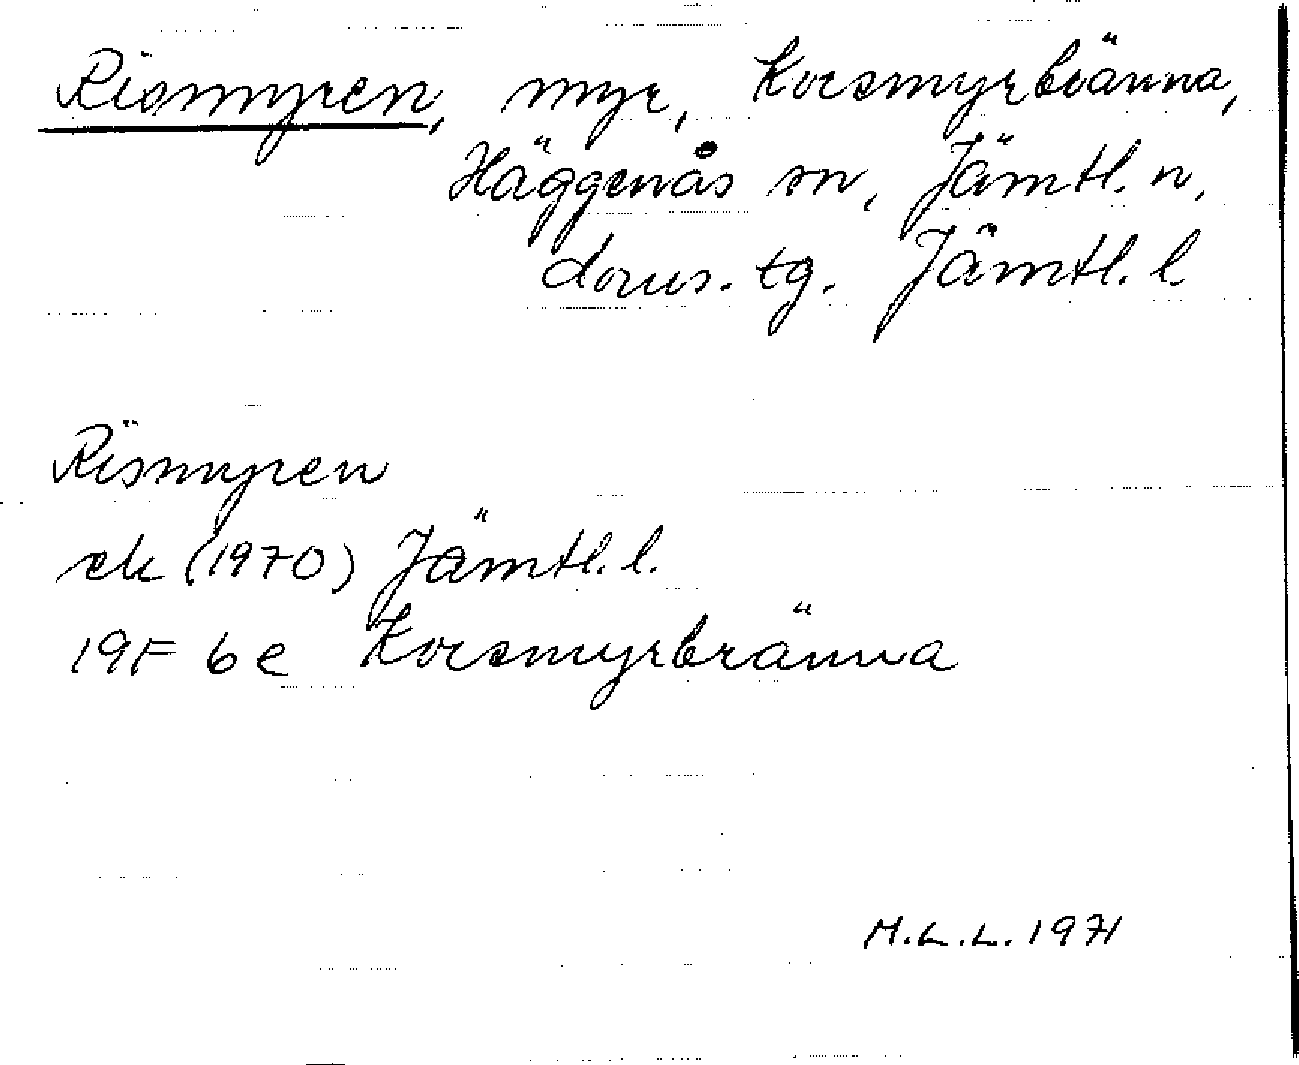 Rismyren, myr, Korsmyrbränna,
Häggenås sn, Jämtl. n.
doms. tg. Jämtl. l.
Rismyren
ek (1970) Jämtl. l.
19F 6e Korsmyrbränna
M.L.L. 1971